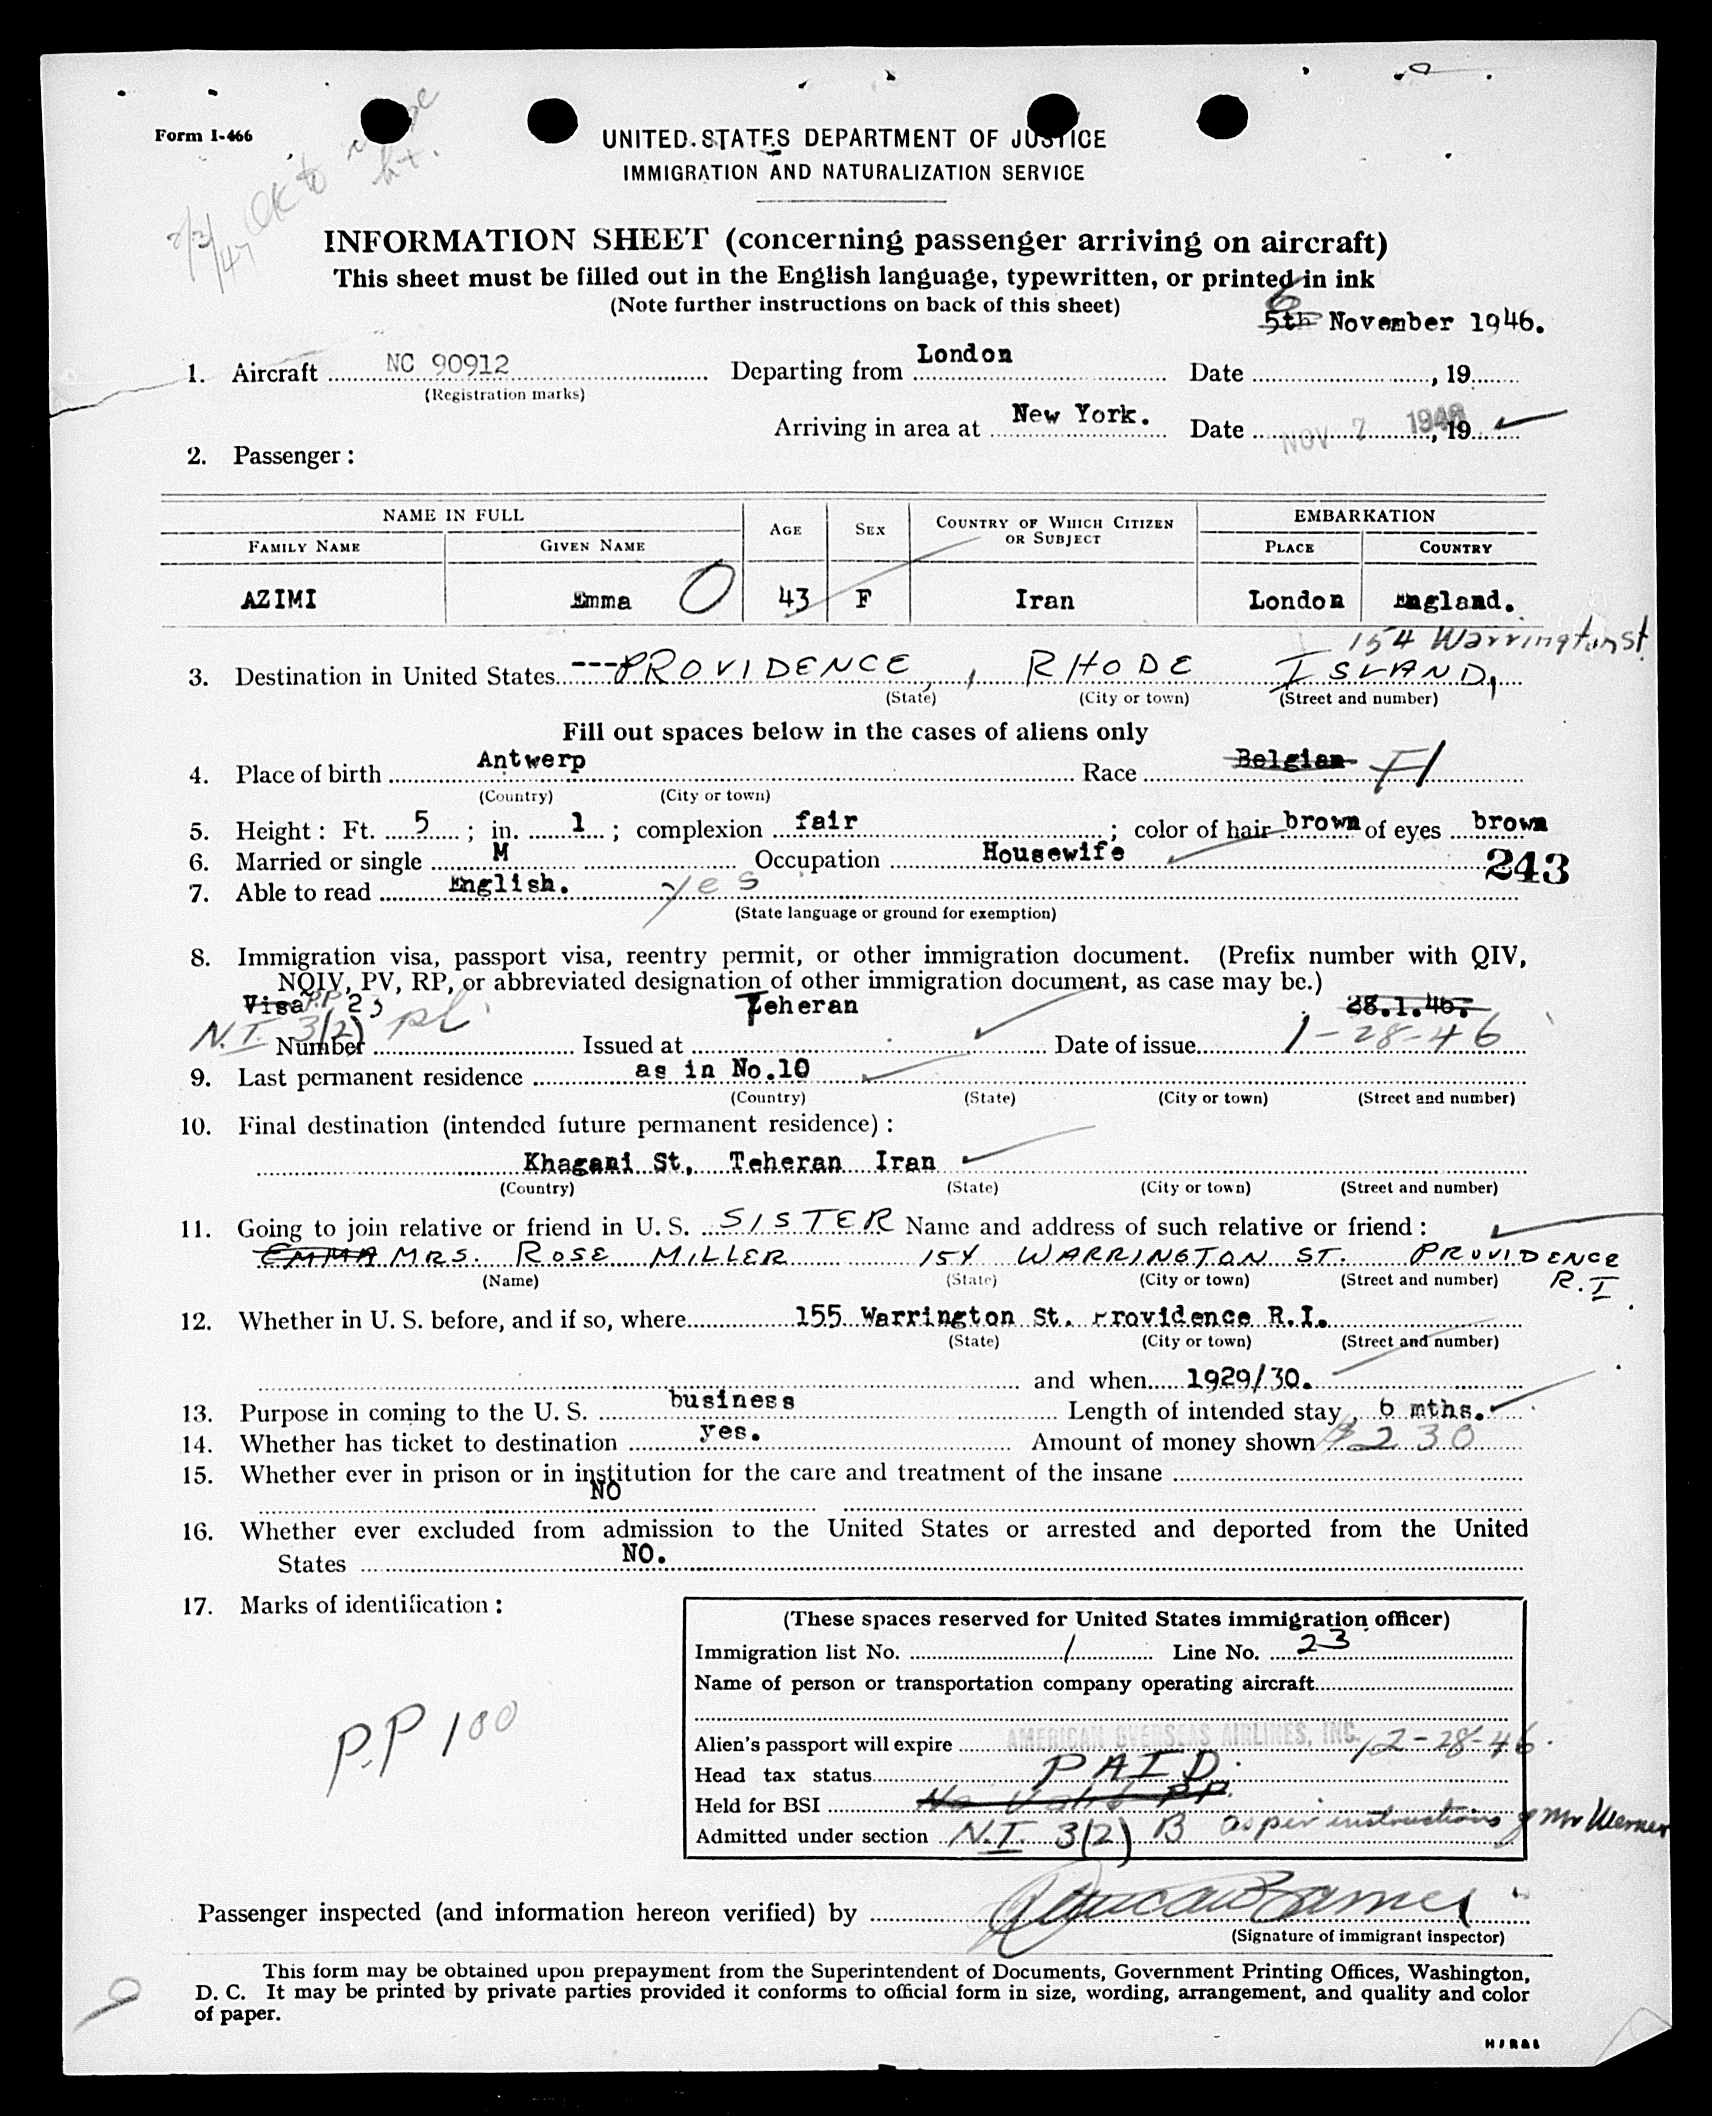 Form I-466
OK to
UNITED STATES DEPARTMENT OF JUSTICE
IMMIGRATION AND NATURALIZATION SERVICE
INFORMATION SHEET (concerning passenger arriving on aircraft)
This sheet must be filled out in the English language, typewritten, or printed in ink
(Note further instructions on back of this sheet)
6
5th November 1946.
1. Aircraft NC 90912 Departing from London Date , 19
(Registration marks)
Arriving in area at New York. Date NOV 7 1946, 19
2. Passenger:
NAME IN FULL AGE SEX COUNTRY OF WHICH CITIZEN OR SUBJECT EMBARKATION
FAMILY NAME GIVEN NAME PLACE COUNTRY
AZIMI Emma 43 F Iran London England.
154 Warrington St
3. Destination in United States ---PROVIDENCE, RHODE ISLAND,
(State) (City or town) (Street and number)
Fill out spaces below in the cases of aliens only
4. Place of birth Antwerp Race Belgian Fl
(Country) (City or town)
5. Height: Ft. 5; in. 1; complexion fair; color of hair brown of eyes brown
6. Married or single M Occupation Housewife
243
7. Able to read English. yes
(State language or ground for exemption)
8. Immigration visa, passport visa, reentry permit, or other immigration document. (Prefix number with QIV,
NQIV, PV, RP, or abbreviated designation of other immigration document, as case may be.)
Visa PP 23 Teheran 28.1.46.
N.I. 3(2) Number Issued at Date of issue 1-28-46
9. Last permanent residence as in No.10
(Country) (State) (City or town) (Street and number)
10. Final destination (intended future permanent residence):
Khagani St, Teheran Iran
(Country) (State) (City or town) (Street and number)
11. Going to join relative or friend in U. S. SISTER Name and address of such relative or friend:
EMMA MRS. ROSE MILLER 154 WARRINGTON ST. PROVIDENCE
(Name) (State) (City or town) (Street and number) R.I
12. Whether in U. S. before, and if so, where 155 Warrington St. Providence R.I.
(State) (City or town) (Street and number)
and when 1929/30.
13. Purpose in coming to the U. S. business Length of intended stay, 6 mths.
14. Whether has ticket to destination yes. Amount of money shown $230
15. Whether ever in prison or in institution for the care and treatment of the insane
NO
16. Whether ever excluded from admission to the United States or arrested and deported from the United
States NO.
17. Marks of identification:
P.P 100
(These spaces reserved for United States immigration officer)
Immigration list No. 1 Line No. 23
Name of person or transportation company operating aircraft
AMERICAN OVERSEAS AIRLINES, INC.
Alien's passport will expire 12-28-46.
Head tax status PAID.
Held for BSI No Valid PP.
Admitted under section N.I. 3(2) B as per instructions of Mr Werner
Passenger inspected (and information hereon verified) by
(Signature of immigrant inspector)
This form may be obtained upon prepayment from the Superintendent of Documents, Government Printing Offices, Washington,
D. C. It may be printed by private parties provided it conforms to official form in size, wording, arrangement, and quality and color
of paper.